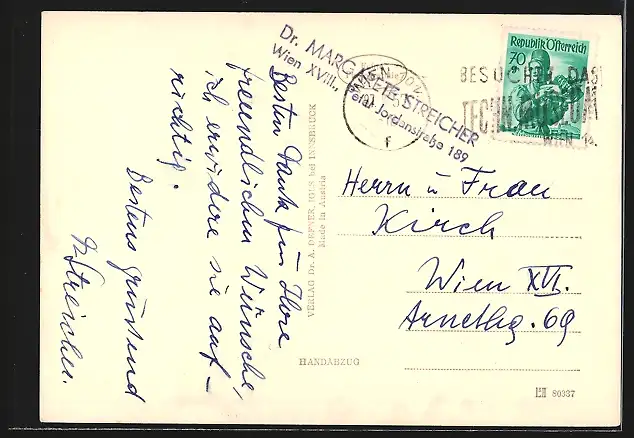 Besten Dank für Ihre
freundlichen Wünsche,
ich erwidere sie auf-
richtig.
Bestens grüssend
Dr. Streicher.
Dr. MARGARETE STREICHER
Wien XVIII, Peter Jordanstraße 189
WIEN
Republik Österreich
70
BESUCHET DAS
TECHN
WIEN
VERLAG Dr. A. DEFNER, IGLS bei INNSBRUCK
Made in Austria
HANDABZUG
Herrn u Frau
Kirch
Wien XVI.
Arnethg. 69
80337